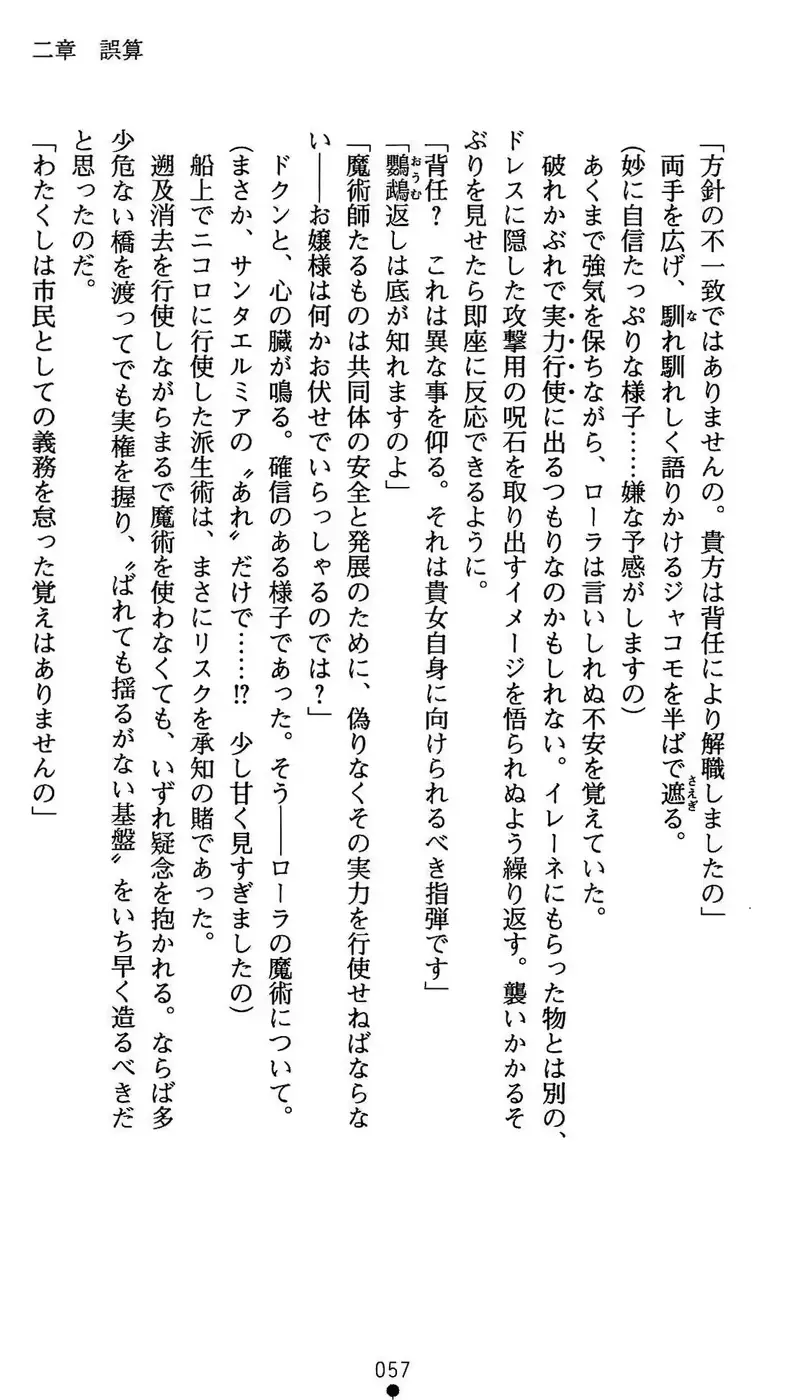 二章　誤算
「方針の不一致ではありませんの。貴方は背任により解職しましたの」
両手を広げ、馴れ馴れしく語りかけるジャコモを半ばで遮る。
（妙に自信たっぷりな様子……嫌な予感がしますの）
あくまで強気を保ちながら、ローラは言いしれぬ不安を覚えていた。
破れかぶれで実力行使に出るつもりなのかもしれない。イレーネにもらった物とは別の、
ドレスに隠した攻撃用の呪石を取り出すイメージを悟られぬよう繰り返す。襲いかかるそ
ぶりを見せたら即座に反応できるように。
「背任？　これは異な事を仰る。それは貴女自身に向けられるべき指弾です」
「鸚鵡返しは底が知れますのよ」
「魔術師たるものは共同体の安全と発展のために、偽りなくその実力を行使せねばならな
い――お嬢様は何かお伏せでいらっしゃるのでは？」
ドクンと、心の臓が鳴る。確信のある様子であった。そう――ローラの魔術について。
（まさか、サンタエルミアの〝あれ〟だけで……!?　少し甘く見すぎましたの）
船上でニコロに行使した派生術は、まさにリスクを承知の賭であった。
遡及消去を行使しながらまるで魔術を使わなくても、いずれ疑念を抱かれる。ならば多
少危ない橋を渡ってでも実権を握り、〝ばれても揺るがない基盤〟をいち早く造るべきだ
と思ったのだ。
「わたくしは市民としての義務を怠った覚えはありませんの」
057